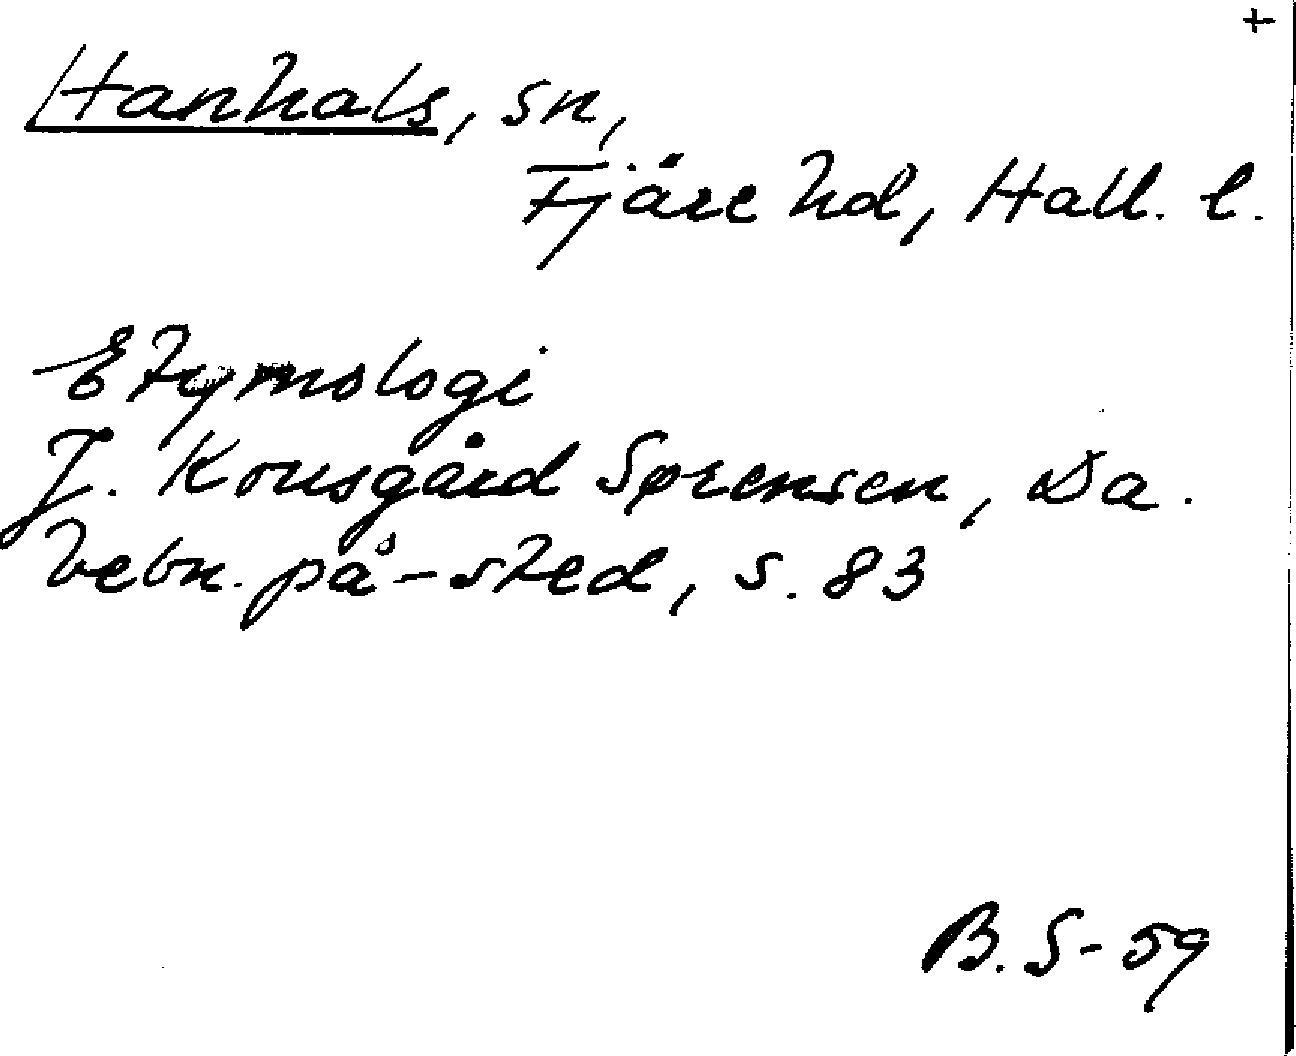 +
Hanhals, sn,
Fjäre hd, Hall. l.
Etymologi
J. Kousgård Sørensen, Da.
bebn. på -sted, s. 83
B. S-59